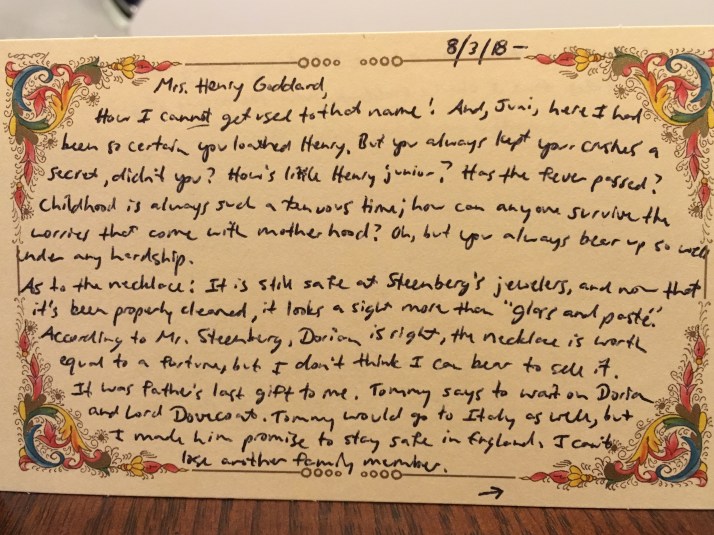 8/3/18 -
Mrs. Henry Goddard,
How I cannot get used to that name! And, Juni, here I had
been so certain you loathed Henry. But you always kept your crushes a
secret, didn't you? How's little Henry junior? Has the fever passed?
Childhood is always such a tenuous time; how can anyone survive the
worries that come with motherhood? Oh, but you always bear up so well
under any hardship.
As to the necklace: It is still safe at Steenberg's jewelers, and now that
it's been properly cleaned, it looks a sight more than "glass and paste."
According to Mr. Steenberg, Dorian is right, the necklace is worth
equal to a fortune, but I don't think I can bear to sell it.
It was father's last gift to me. Tommy says to wait on Dorian
and Lord Dovecoat. Tommy would go to Italy as well, but
I made him promise to stay safe in England. I can't
lose another family member.
→